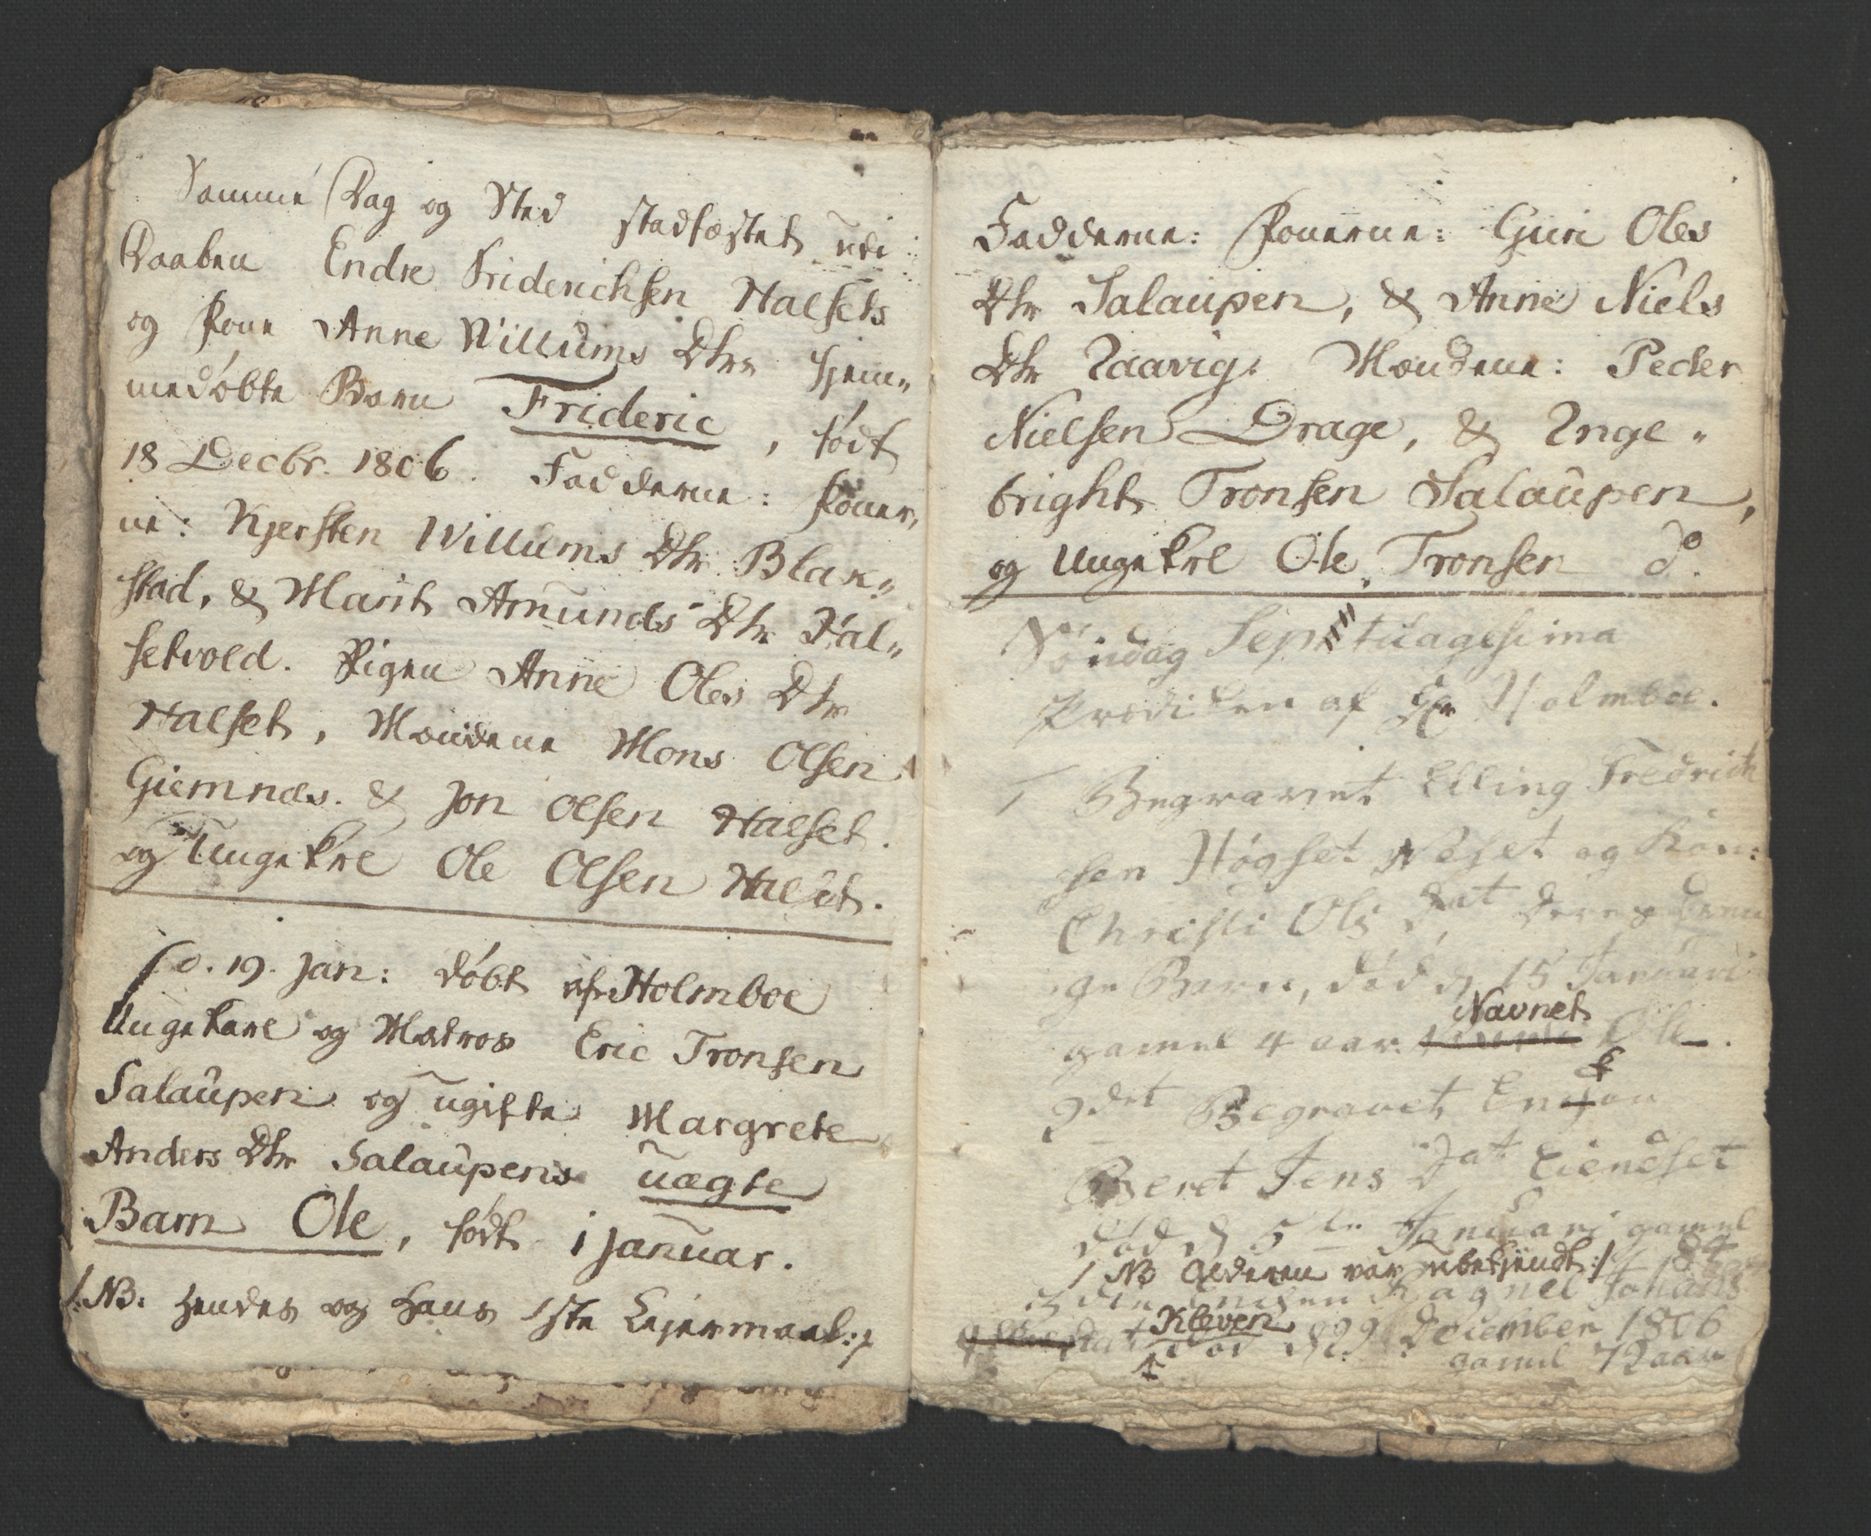 Samme Dag og Sted stadfæstet udi
Daaben Endre Friderichsen Halsets
og Kone Anne Willums Dtrs hjem„
medøbte Barn Frideric, født
18 Decbr. 1806. Fadderne: Koner„
ne: Kjersten Willums Dtr Blak„
stad, & Marit Amunds Dtr Hal„
setvold. Pigen Anne Oles Dtr
Halset, Mændene Mons Olsen
Giemnæs. & Jon Olsen Halset.
og Ungekrl Ole Olsen Halset.
d. 19. Jan: døbt af Holmboe
Ungekarl og Matros Eric Tronsen
Salaupen og ugifte Margrete
Anders Dtr Salaupens uægte
Barn Ole, født i Januar.
/:NB: hendes og hans 1ste Lejermaal:/
Fadderne: Konerne: Guri Oles
Dtr Salaupen, & Anne Niels
Dtr Raavig. Mændene: Peder
Nielsen Drage, & Inge„
bright Tronsen Salaupen,
og Ungekrl Ole Tronsen do.
Søndag Septuagesima
Prediken af Hr Holmboe.
1 Begravet Elling Fredrich
sen Høgset og Kon:
Christi Ols Dat deres
ge Barn, død d 15 Januari
gamel 4 aar. Navnet Ole.
2det Begravet Enken
Beret Jens Dat Eiendset
død d 5te Januari gamel 84
/ NB Alderen var ubekjendt:/
3die Enken Ragnel Johans
Dat Kleven død d 29 December 1806
gamel 72 aar